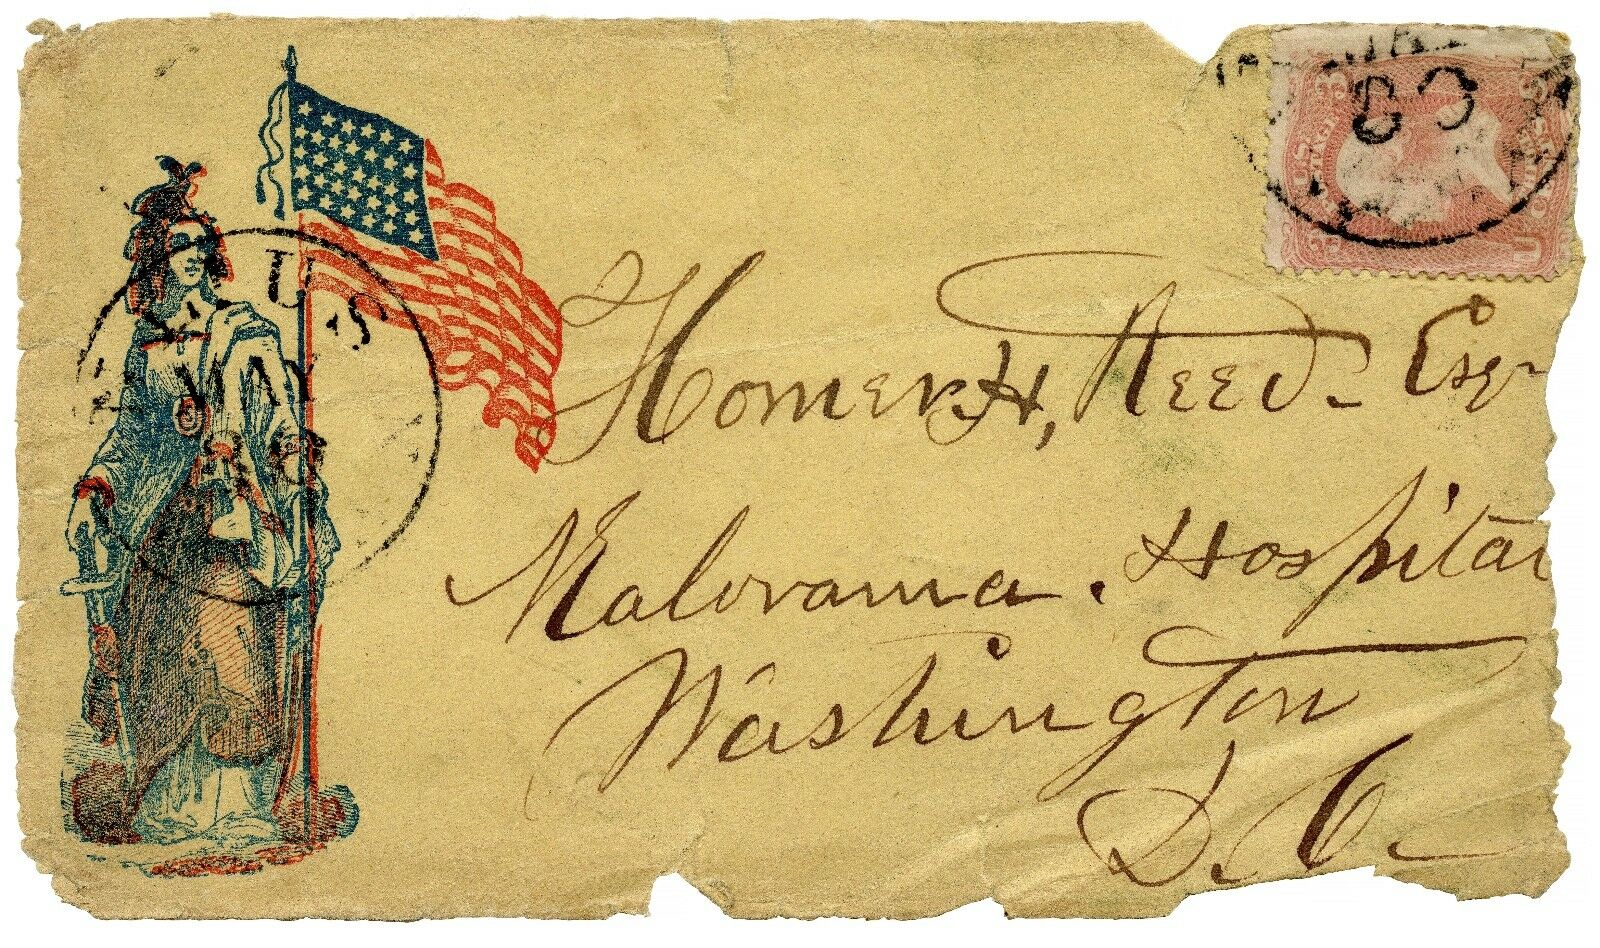 U.S.
MAY
Homer H, Reed - Esqr
Kalorama. Hospital
Washington
D.C.